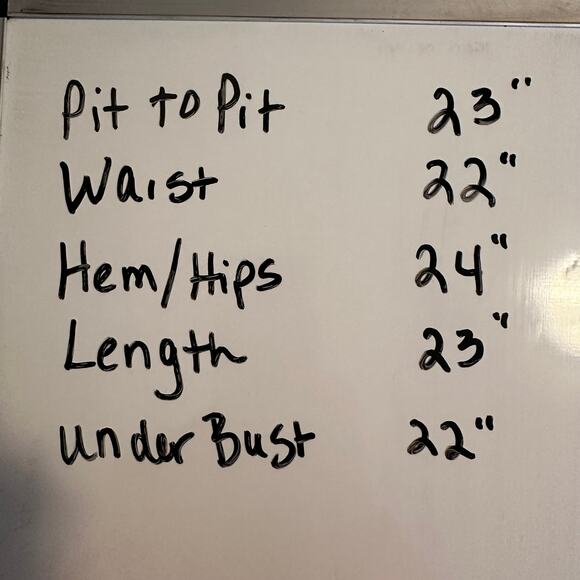 Pit to Pit 23"
Waist 22"
Hem/Hips 24"
Length 23"
under Bust 22"